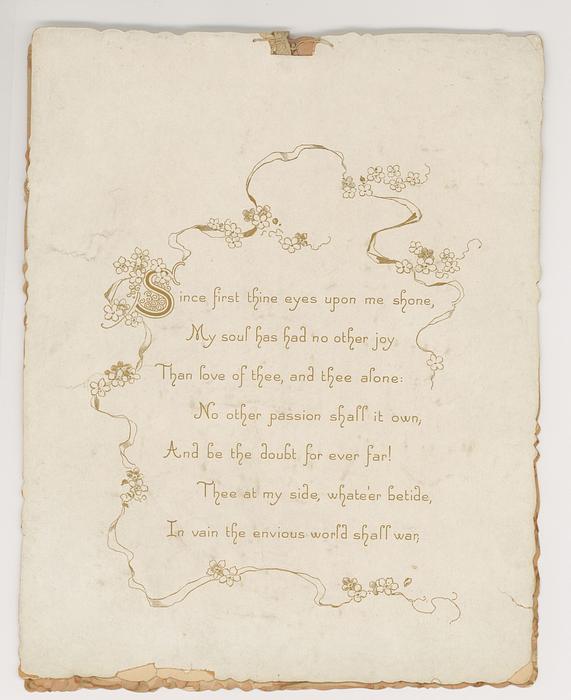 Since first thine eyes upon me shone,
My soul has had no other joy
Than love of thee, and thee alone:
No other passion shall it own,
And be the doubt for ever far!
Thee at my side, whate'er betide,
In vain the envious world shall war,